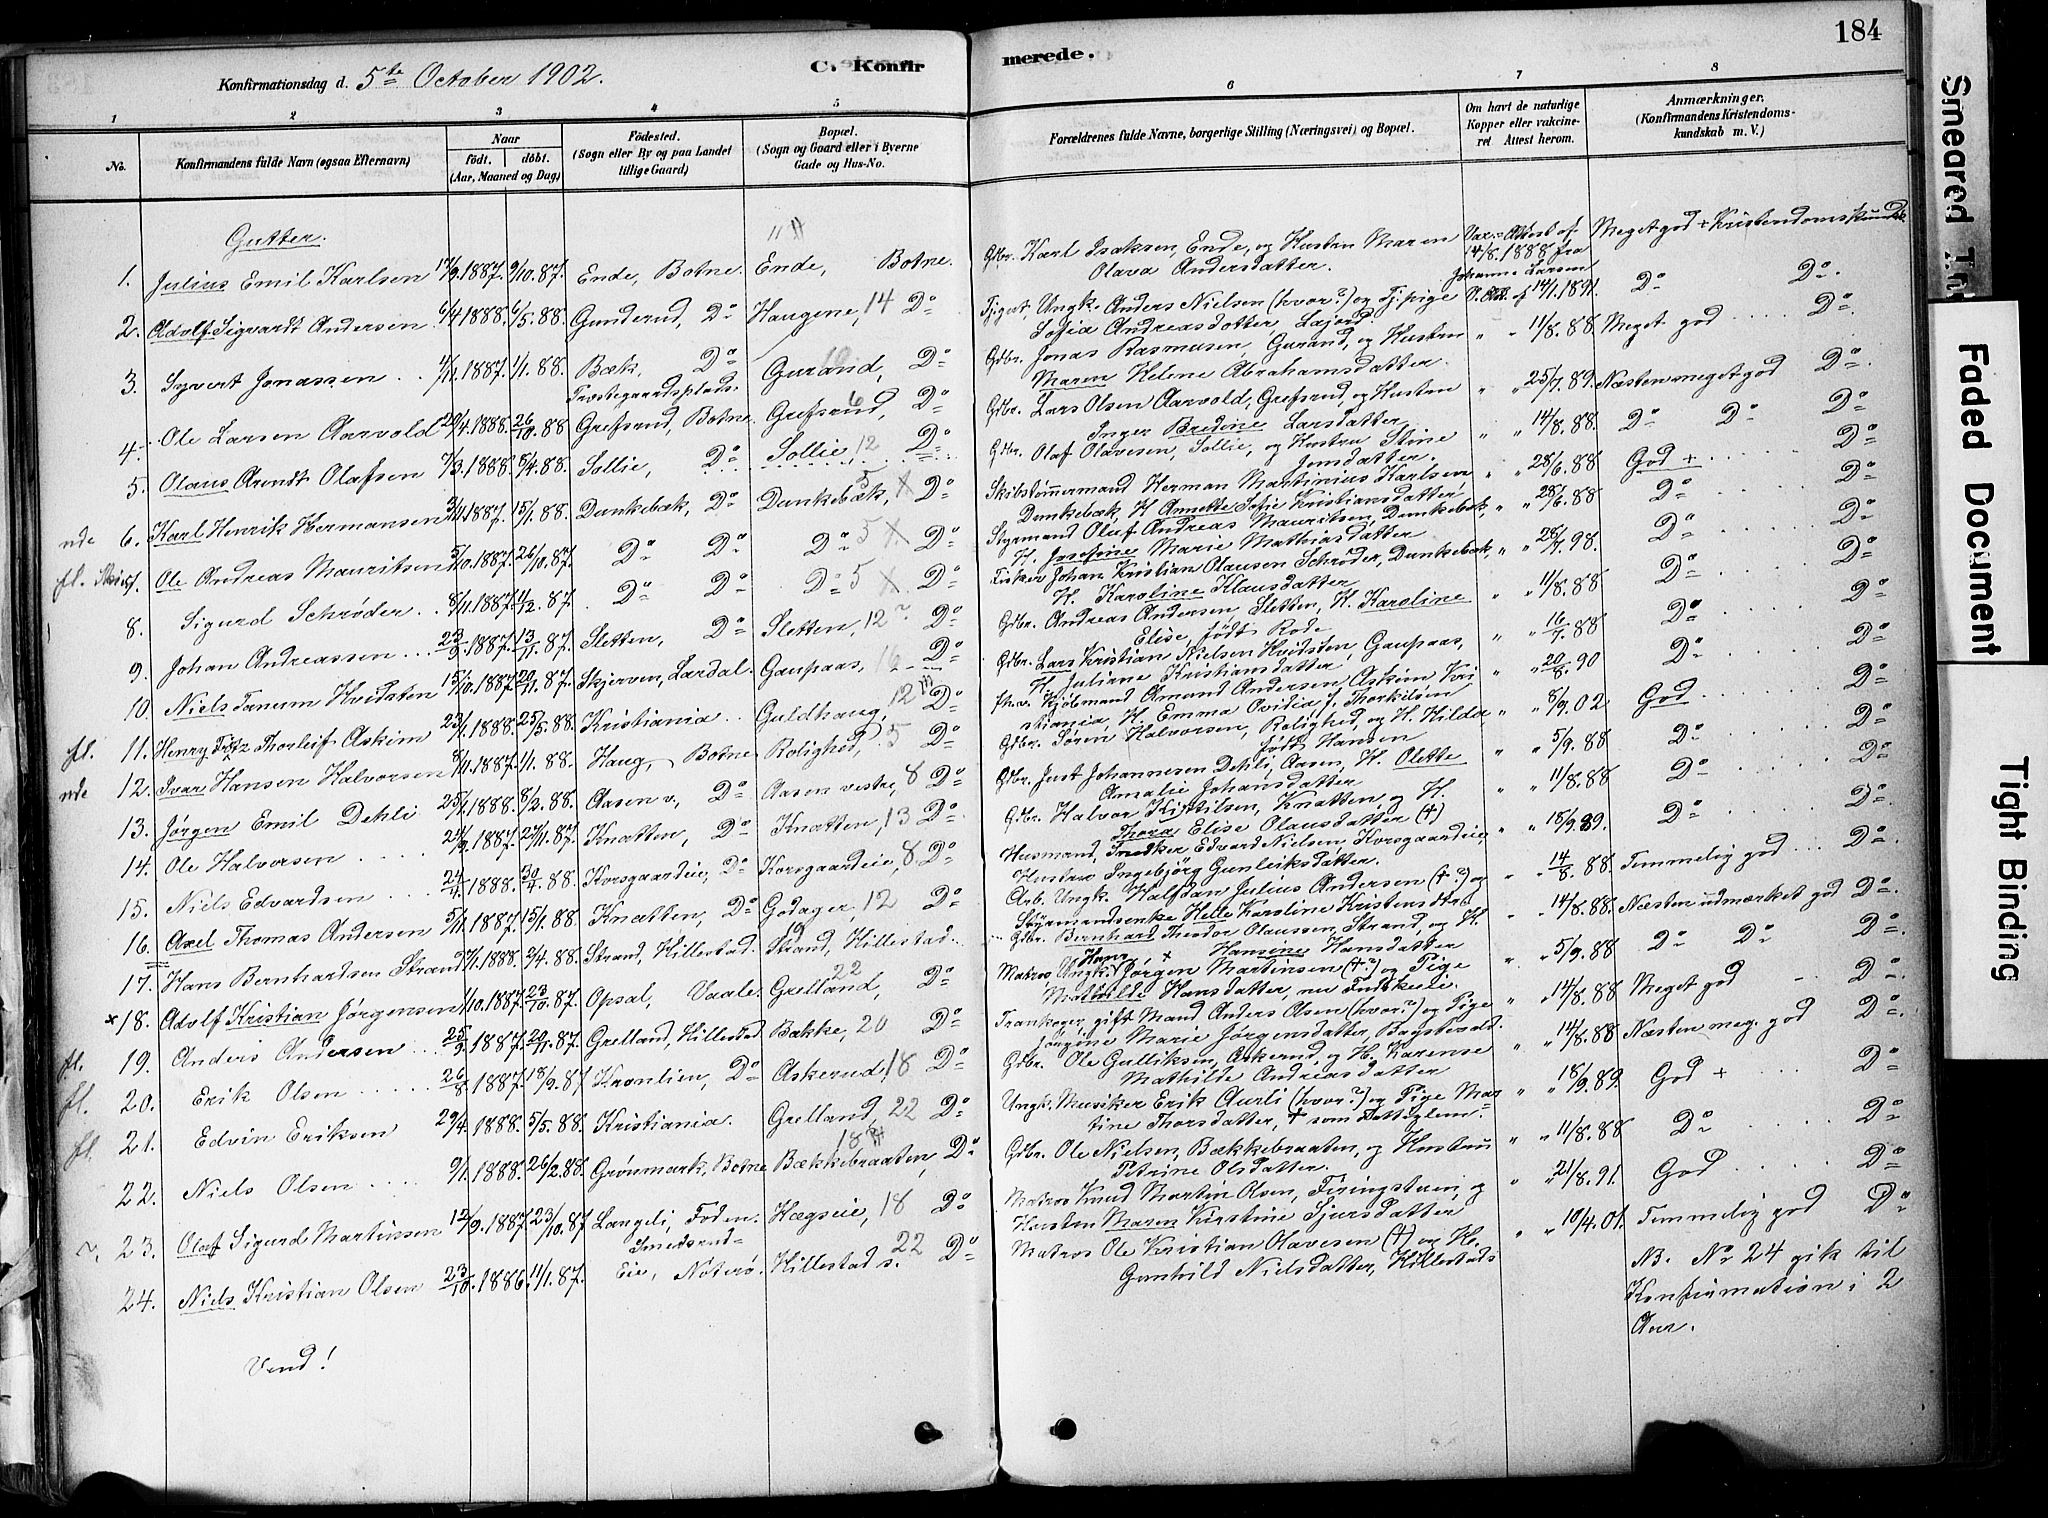 184
C. Konfirmerede.
Konfirmationsdag d. 5te October 1902.
1 2 3 4 5 6 7 8
No.
Konfirmandens fulde Navn (ogsaa Efternavn)
Naar
födt. döbt.
(Aar, Maaned og Dag)
Födested.
(Sogn eller By og paa Landet
tillige Gaard)
Bopæl.
(Sogn og Gaard eller i Byerne
Gade og Hus-No.
Forældrenes fulde Navne, borgerlige Stilling (Næringsvei) og Bopæl.
Om havt de naturlige
Kopper eller vakcine-
ret Attest herom.
Anmærkninger.
(Konfirmandens Kristendoms-
kundskab m. V.)
Gutter.
1. Julius Emil Karlsen 17/9.1887. 9/10.87. Ende, Botne. Ende, Botne. Gdbr. Karl Isaksen, Ende, og Hustru Maren
Olava Andersdatter. Vax. Attest af 14/8.1888 fra Johanne Larsen Meget god Kristendomskundsk.
2. Adolf Sigvardt Andersen 6/4.1888. 6/5.88. Gunderud, Do Haugene, 14 Do Tjgut, Ungk. Anders Nielsen (hvor?) og Tj.pige
Sofia Andreasdatter, 14/1.1891. Do Do
3. Syvert Jonassen 4/11.1887. 1/1.88. Bæk, Do Gurand, Do Gdbr. Jonas Rasmusen, Gurand, og Hustru
Maren Helene Abrahamsdatter. " " 11/8.88. Meget god Do
4. Ole Larsen Aarvold 20/4.1888. 26/10.88 Præstegaardsplads. Grefsrud, Botne. Grefsrud, 6 Do Gdbr. Lars Olsen Aarvold, Grefsrud, og Hustru
Inger Bredine Larsdatter " " 25/7.89. Næsten meget god Do
5. Olaus Arendt Olafsen 7/3.1888. 5/4.88. Sollie, Do Sollie 12 Do Gdbr. Olaf Olavesen, Sollie, og Hustru Stine
Jonsdatter. " " 14/8.88. Do Do Do
nde 6. Karl Henrik Hermansen 3/11.1887. 15/1.88. Dunkebæk, Do Dunkebæk, 5 Do Skibstømmermand Herman Martinius Karlsen
Dunkebæk, H. Annette Sofie Kristiansdatter " " 28/6.88 God + Do
fl. 7. Ole Andreas Mauritsen 5/10.1887. 26/10.87. Do Do Do 5 Do Styrmand Oluf Andreas Mauritsen, Dunkebæk,
H. Josefine Marie Mathiasdatter " " 28/6.88 Do Do
8. Sigurd Schrøder 8/11.1887. 11/12.87. Do Do Do 5 Do Fisker Johan Kristian Olausen Schrøder, Dunkebæk,
H. Karoline Klausdatter " " 28/7.98. Do Do
9. Johan Andreassen 23/9.1887. 13/11.87. Sletten, Do Sletten, 12 Do Gdbr. Andreas Andersen Sletten, H. Karoline
Elise, født Rode " " 11/8.88 Do Do
10. Niels Tanum Hvidsten 15/10.1887. 20/11.87. Skjerven, Lardal. Gaupaas, 16 Do Gdbr. Lars Kristian Nielsen Hvidsten, Gaupaas,
H. Juliane Kristiansdatter " " 16/7.88 Do Do
fl. 11. Henry Fritz Thorleif Askim 23/1.1888. 25/5.88. Kristiania. Guldhaug, 12 Do fhv. Kjöbmand Amand Andersen Askim Kri-
stiania, H. Emma Ovidia f. Therkilsen " " 20/8.90 Do Do
nde 12. Ivar Hansen Halvorsen 8/11.1887. 1/1.88. Haug, Botne Rolighed, 5 Do Gdbr. Søren Halvorsen, Rolighed, og H. Hilda
født Hansen " " 8/9.02 God Do
13. Jørgen Emil Dehli 25/1.1888. 8/2.88. Aasen v, Do Aasen vestre, 8 Do Gdbr. Just Johannesen Dehli, Aasen, H. Olette
Amalie Johansdatter " " 5/9.88 Do Do
14. Ole Halvorsen 24/9.1887. 27/11.87. Knatten, Do Knatten, 13 Do Gdbr. Halvor Kittilsen, Knatten, og H.
Thora Elise Olausdatter (+) " " 11/8.88 Do Do
15. Niels Edvardsen 24/4.1888. 30/4.88. Korsgaardeie, Do Korsgaardeie, 8 Do Husmand, Snedker Edvard Nielsen, Korsgaardeie,
Hustru Ingebjörg Gunleiksdatter. " " 15/9.89. Do Do
16. Axel Thomas Andersen 5/11.1887. 15/1.88. Knatten, Do Godager, 12 Do Arb. Ungk. Halfdan Julius Andersen (+?) og
Styrmandsenke Helle Karoline Kristensdtr. " 14/8.88 Temmelig god Do
17. Hans Bernhardsen Strand 7/1.1888. 2/4.88. Strand, Hillestad. Strand, Hillestad. Gdbr. Bernhard Theodor Olaussen, Strand, og H.
Hansine Hansdatter " 14/8.88. Næsten udmærket god Do
18. Adolf Kristian Jørgensen 1/10.1887. 23/10.87. Opsal, Vaale. Grelland, 22 Do Matros, Ungk. Hans Jørgen Martinsen (+?) og Pige
Mathilde Hansdatter, " " 5/9.88 Do Do Do
fl. 19. Anders Andersen 25/9.1887. 20/11.87. Grelland, Hillestad. Bække, 20 Do Trankoger, gift Mand Anders Olsen (hvor?) og Pige
Jørgine Marie Jørgensdatter, " " 14/8.88 Meget god Do
fl. 20. Erik Olsen 26/8.1887. 18/9.87 Kronlien, Do Askerud, 18 Do Gdbr. Ole Gulliksen, Askerud, og H. Karense
Mathilde Andreasdatter " " 14/8.88 Næsten meg. god Do
fl. 21. Edvin Eriksen 29/4.1888. 5/5.88. Kristiania. Grelland, 22 Do Ungk. Musiker Erik Aurli (hvor?) og Pige Mar-
tine Thorsdatter, + som Fattiglem. " " 18/9.89 God + Do
22. Niels Olsen 9/1.1888. 26/2.88. Grönmark, Botne Bækkebraaten, 18 Do Gdbr. Ole Nielsen, Bækkebraaten, og Hustru
Petrine Olsdatter. " " 11/8.88 Do Do
23. Olaf Sigurd Martinsen 12/9.1887. 23/10.87 Langeli, Foden. Hægseie, 18 Do Matros Knud Martin Olsen, og
Hustru Maren Kirstine Sjursdatter " " 21/8.91. God Do
24. Niels Kristian Olsen 23/10.1886. 11/1.87. Smedsrud-
Eie, Nøterø. Hillestad s. 22 Do Matros Ole Kristian Olavesen (+) og H.
Gunhild Nielsdatter, Hillestad s " " 10/4.01. Temmelig god Do
NB. No 24 gik til
Konfirmation i 2
Aar.
Vend!
Smeared
Faded Document
Tight Binding